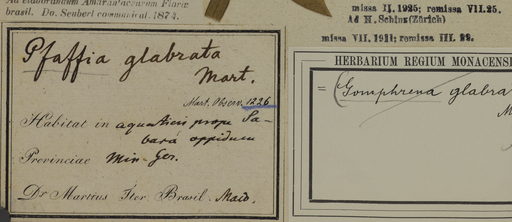 Ad elaborandum Amarantacearum Florae
brasil. Do. Seubert communicat. 1874.
missa II. 1925; remissa VII. 25.
Ad H. Schinz (Zürich)
missa VII. 1921; remissa III. 22.
Pfaffia glabrata
Mart.
Mart. Observ. 1226
Habitat in aquaticis prope Sa-
bará oppidum
Provinciae Min. Ger.
Dr Martius Iter Brasil. Maio.
HERBARIUM REGIUM MONACENS
= (Gomphrena glabra
M